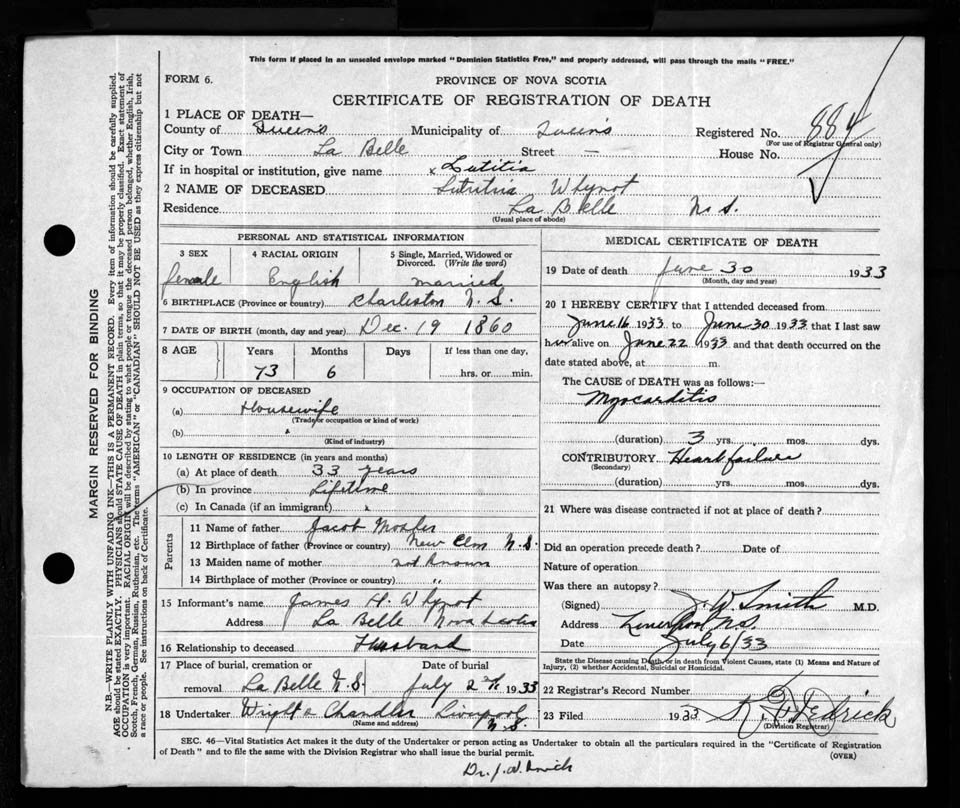 This form if placed in an unsealed envelope marked "Dominion Statistics Free," and properly addressed, will pass through the mails "FREE."
FORM 6.
PROVINCE OF NOVA SCOTIA
CERTIFICATE OF REGISTRATION OF DEATH
1 PLACE OF DEATH—
County of Queens Municipality of Queens Registered No. 884
(For use of Registrar General only)
City or Town La Belle Street — House No.
If in hospital or institution, give name x Lutitia
2 NAME OF DECEASED Whynot
Residence La Belle N.S.
(Usual place of abode)
PERSONAL AND STATISTICAL INFORMATION
3 SEX
female
4 RACIAL ORIGIN
English
5 Single, Married, Widowed or Divorced. (Write the word)
married
6 BIRTHPLACE (Province or country) Charleston N.S.
7 DATE OF BIRTH (month, day and year) Dec. 19 1860
8 AGE Years Months Days If less than one day,
73 6 hrs. or min.
9 OCCUPATION OF DECEASED
(a) Housewife
(Trade or occupation or kind of work)
(b)
(Kind of industry)
10 LENGTH OF RESIDENCE (in years and months)
(a) At place of death 33 years
(b) In province Lifetime
(c) In Canada (if an immigrant)
Parents
11 Name of father Jacob
12 Birthplace of father (Province or country) New Elm N.S.
13 Maiden name of mother not known
14 Birthplace of mother (Province or country) "
15 Informant's name James H. Whynot
Address La Belle Nova Scotia
16 Relationship to deceased Husband
17 Place of burial, cremation or removal La Belle N.S.
Date of burial July 2 1933
18 Undertaker Wright & Chandler Liverpool N.S.
(Name and address)
MEDICAL CERTIFICATE OF DEATH
19 Date of death June 30 1933
(Month, day and year)
20 I HEREBY CERTIFY that I attended deceased from
June 16 1933 to June 30 1933 that I last saw
her alive on June 22 1933 and that death occurred on the
date stated above, at m.
The CAUSE of DEATH was as follows:—
Myocarditis
(duration) 3 yrs. mos. dys.
CONTRIBUTORY Heart failure
(Secondary)
(duration) yrs. mos. dys.
21 Where was disease contracted if not at place of death?
Did an operation precede death? Date of
Nature of operation
Was there an autopsy?
(Signed) J. W. Smith M.D.
Address Liverpool N.S.
Date July 6/33
State the Disease causing Death, or in death from Violent Causes, state (1) Means and Nature of
Injury, (2) whether Accidental, Suicidal or Homicidal.
22 Registrar's Record Number
23 Filed 1933
(Division Registrar)
SEC. 46—Vital Statistics Act makes it the duty of the Undertaker or person acting as Undertaker to obtain all the particulars required in the "Certificate of Registration
of Death" and to file the same with the Division Registrar who shall issue the burial permit. (OVER)
MARGIN RESERVED FOR BINDING
N.B.—WRITE PLAINLY WITH UNFADING INK—THIS IS A PERMANENT RECORD. Every item of information should be carefully supplied.
AGE should be stated EXACTLY. PHYSICIANS should STATE CAUSE OF DEATH in plain terms, so that it may be properly classified. Exact statement of
OCCUPATION is very important. RACIAL ORIGIN will be described by stating to what people or tongue the deceased person belonged, whether English, Irish,
Scotch, French, German, Russian, Ruthenian, etc. The terms "AMERICAN" or "CANADIAN" SHOULD NOT BE USED as they express citizenship but not
a race or people. See instructions on back of Certificate.